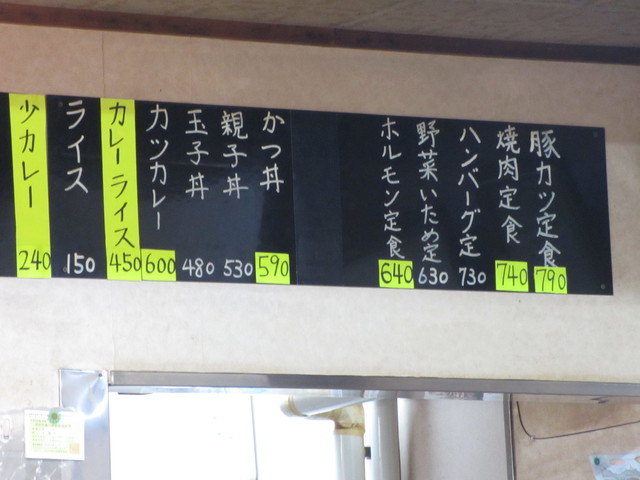 豚カツ定食 790
焼肉定食 740
ハンバーグ定 730
野菜いため定 630
ホルモン定食 640
かつ丼 590
親子丼 530
玉子丼 480
カツカレー 600
カレーライス 450
ライス 150
少カレー 240